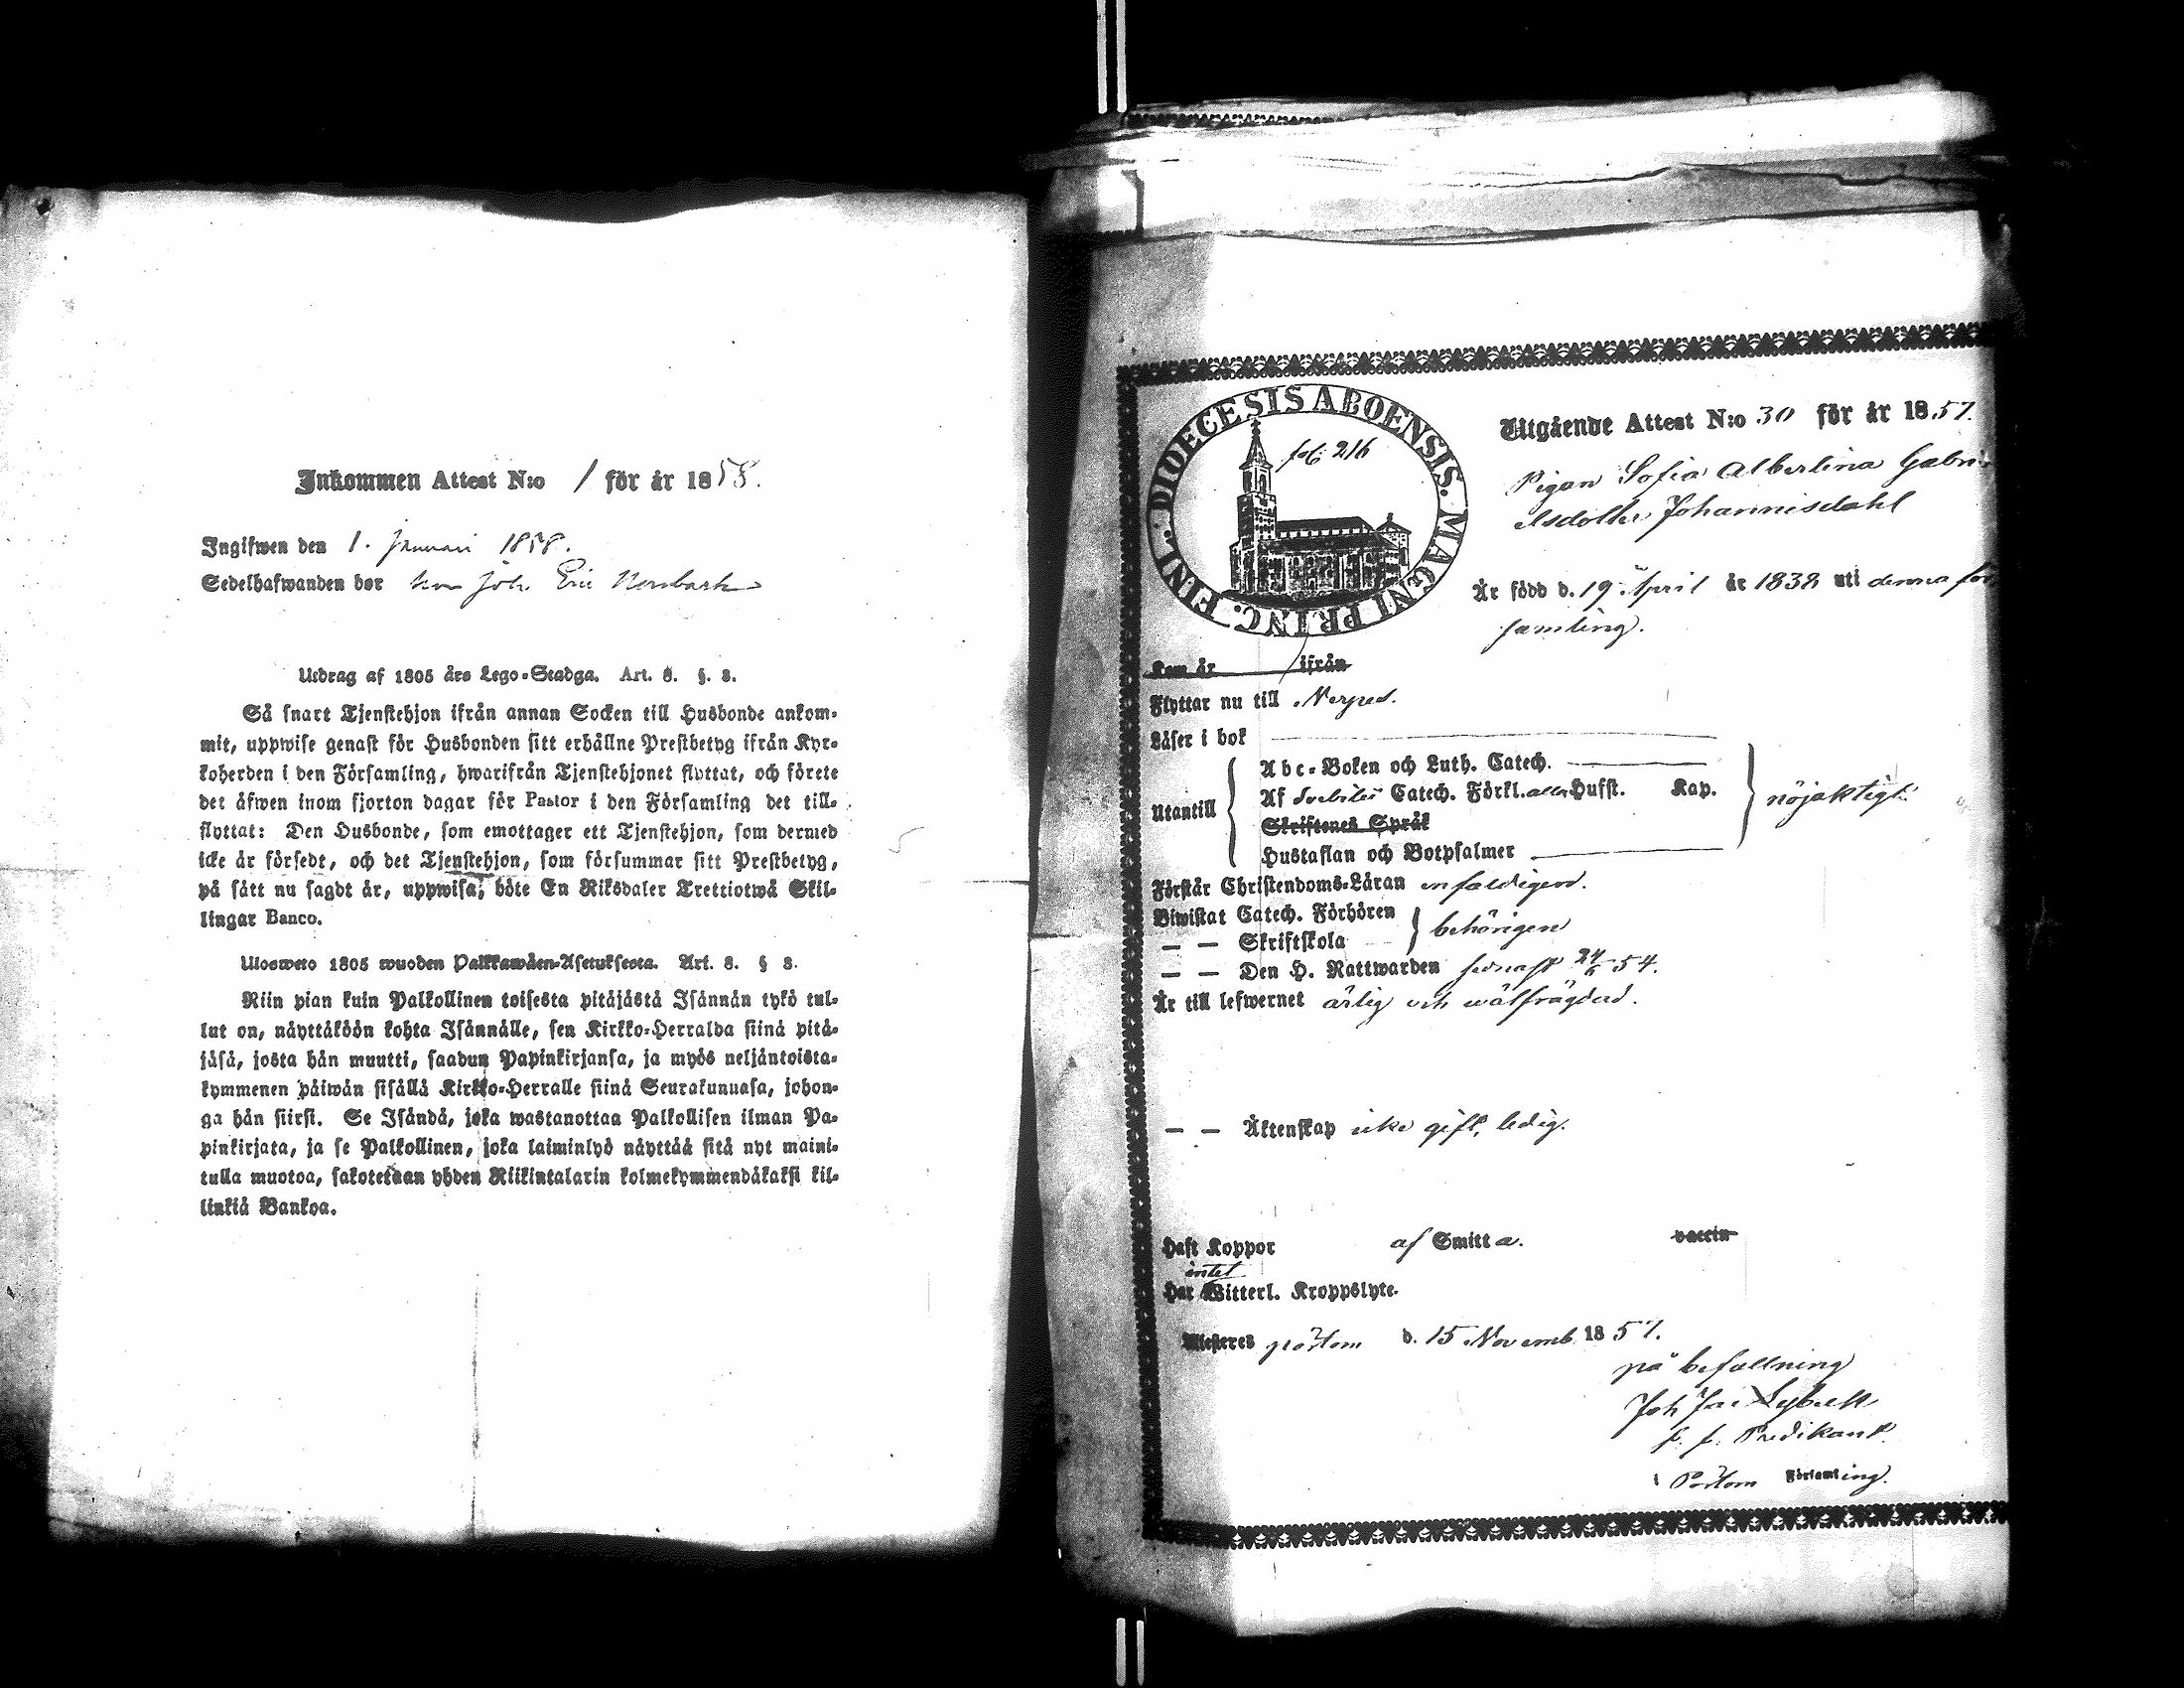 Inkommen Attest N:o 1 för år 1858.
Ingifwen den 1. Januari 1858.
Sedelhafwanden bor hos Joh. Eric
Utdrag af 1805 års Lego-Stadga. Art. 8. §. 8.
Så snart Tjenstehjon ifrån annan Socken till Husbonde ankom-
mit, uppwise genast för Husbonden sitt erhållne Prestbetyg ifrån Kyr-
koherden i den Församling, hwarifrån Tjenstehjonet flyttat, och förete
det äfwen inom fjorton dagar för Pastor i den Församling det till-
flyttat: Den Husbonde, som emottager ett Tjenstehjon, som dermed
icke är försedt, och det Tjenstehjon, som försummar sitt Prestbetyg,
på sätt nu sagdt är, uppwisa, böte En Riksdaler Trettiotwå Skil-
lingar Banco.
Ulosweto 1805 wuoden Palkkawäen-Asetuksesta. Art. 8. § 8.
Niin pian kuin Palkollinen toisesta pitäjästä Isännän tykö tul-
lut on, näyttäköön kohta Isännälle, sen Kirkko-Herralda siinä pitä-
jäsä, josta hän muutti, saadun Papinkirjansa, ja myös neljäntoista-
kymmenen päiwän sisällä Kirkko-Herralle siinä Seurakunnasa, johon-
ga hän siirsi. Se Isändä, joka wastanottaa Palkollisen ilman Pa-
pinkirjata, ja se Palkollinen, joka laiminlyö näyttää sitä nyt maini-
tulla muotoa, sakotetaan yhden Riikintalarin kolmekymmendäkaksi kil-
linkiä Bankoa.
DIOECESIS ABOENSIS. MAGNI PRINC. FINL.
fol. 216
Utgående Attest N:o 30 för år 1857.
Pigan Sofia Albertina Gabri-
elsdotter Johannisdahl
Är född d. 19 April år 1838 uti denna för
samling.
Kom år ifrån
Flyttar nu till Nerpes.
Läser i bok
Utantill
Abc-Boken och Luth. Catech.
Af Svebilii Catech. Förkl. alla Hufst. Kap.
Skriftenes Språk
Hustaflan och Botpsalmer
nöjaktigt.
Förstår Christendoms-Läran enfaldigend.
Biwistat Catech. Förhören
— — Skriftskola
behörigen
— — Den H. Nattwarden sednast 24/6 54.
Är till lefwernet ärlig och wälfrägdad.
— — Äktenskap icke gift, ledig.
Haft Koppor af Smitta. vaccin
intet
Har Witterl. Kroppslyte.
Attesteres Pörtom d. 15 Novemb. 1857.
på befallning
Joh
f. f. Predikant
i Pörtom Församling.